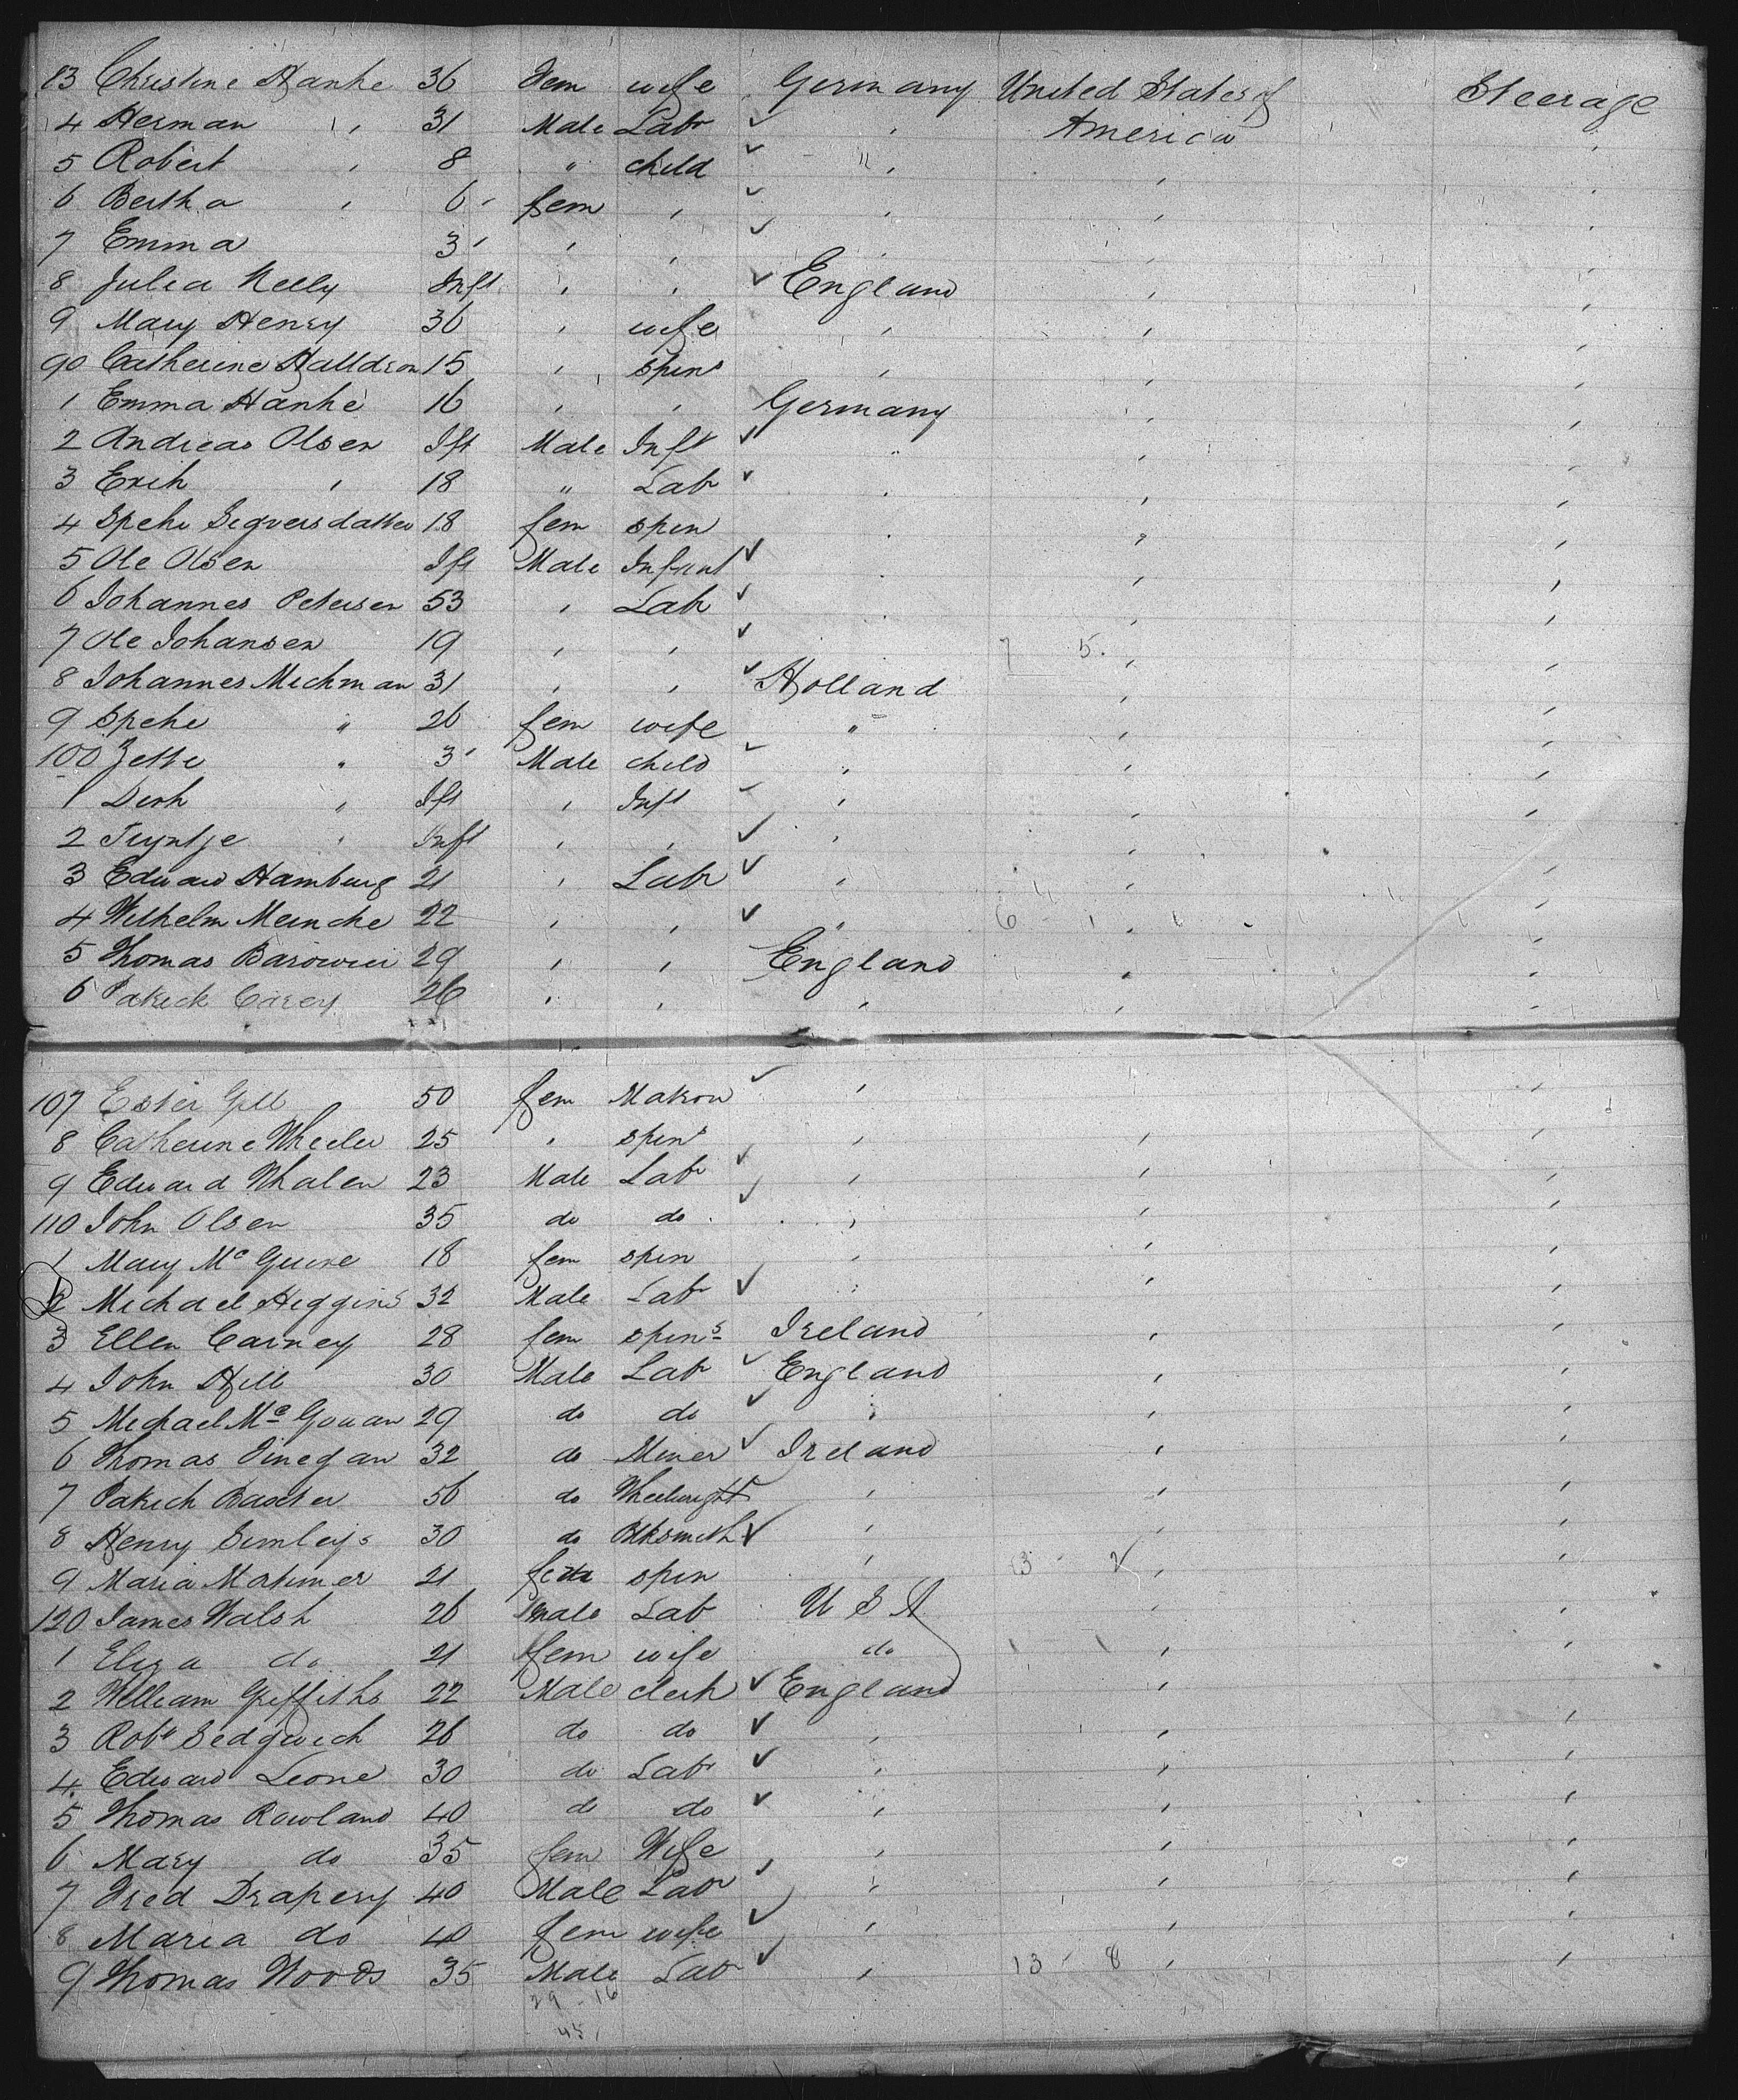 83 Christine Hanke 36 Fem wife Germany United States of Steerage
4 Herman " 31 Male Labr " America
5 Robert " 8 " child " " "
6 Bertha " 6 fem " " " "
7 Emma 3 " " " "
8 Julia Kelly Inft " " England " "
9 Mary Henry 36 " wife " " "
90 Catherine Halldron 15 " spins " " "
1 Emma Hanke 16 " " Germany " "
2 Andreas Olsen Ift Male Inft " " "
3 Erik " 18 " Labr " " "
4 Spehe Segversdatter 18 fem spin " " "
5 Ole Olsen Ift Male Infant " " "
6 Johannes Petersen 53 " Labr " " "
7 Ole Johansen 19 " " 7 5 " "
8 Johannes Mechman 31 " " Holland " "
9 Spehe " 26 fem wife " " "
100 Jette " 3 Male child " " "
1 Dirk " Ift " Inft " " "
2 Tryntje " Inft " " " " "
3 Edward Hamburg 21 " Labr " " "
4 Wilhelm Meincke 22 " " " 6 1 " "
5 Thomas 29 " " England " "
6 Patrick Carey 26 " " " " "
107 Ester Gill 50 fem Matron " "
8 Catherine Wheeler 25 " spins " " "
9 Edward Whalen 23 Male Labr " " "
110 John Olsen 35 do do " " "
1 Mary McGuire 18 fem spin " " "
2 Michael Higgins 32 Male Labr " " "
3 Ellen Carney 28 fem spins Ireland " "
4 John Hill 30 Male Labr England " "
5 Michael McGouan 29 do do " " "
6 Thomas Finegan 32 do Miner Ireland " "
7 Patrick Baxter 56 do Wheelwright " " "
8 Henry Sumleys 30 do Blksmith " " "
9 Maria Matimer 21 fem spin " 3 - 2 " "
120 James Walsh 26 Male Labr U S A " "
1 Eliza do 21 fem wife do " "
2 William Griffiths 22 Male clerk England " "
3 Robt Sedgwick 26 do do " " "
4 Edward Leone 30 do Labr " " "
5 Thomas Rowland 40 do do " " "
6 Mary do 35 fem Wife " " "
7 Fred Drapery 40 Male Labr " " "
8 Maria do 40 fem wife " " "
9 Thomas Woods 35 Male Labr " 13 - 8 " "
29 - 16
45